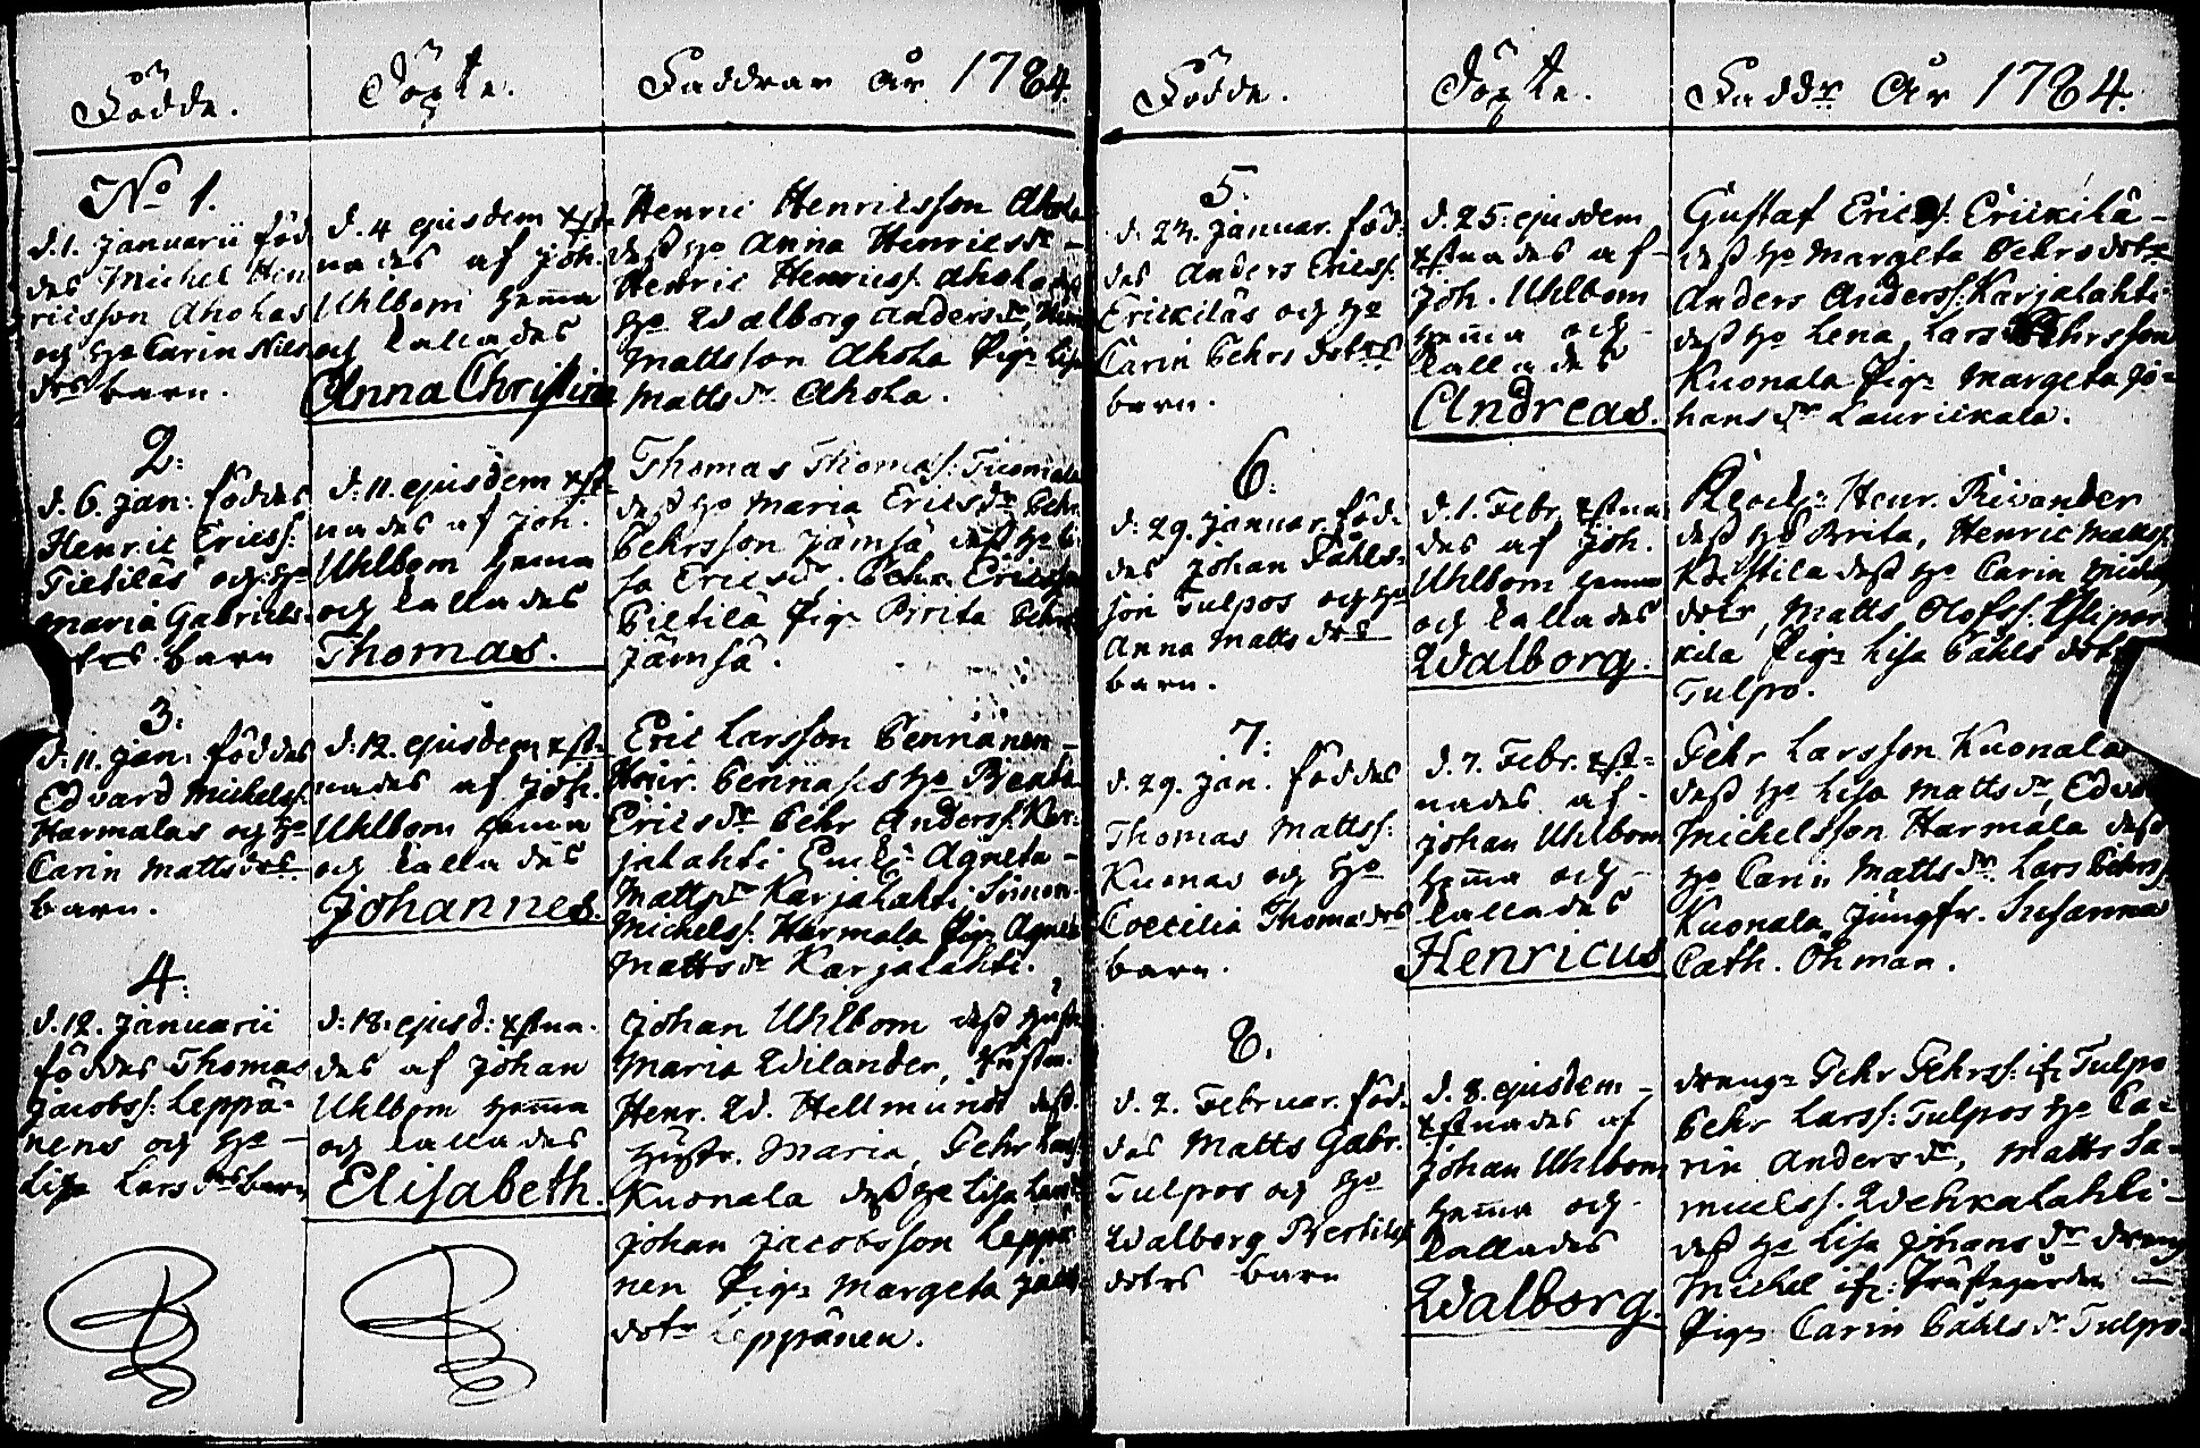 Födde.
Döpte.
Faddrar År 1784.
No 1.
d. 1. Januarii föd
des Michel Hen
ricsson Aholas
och ho Carin Nils
drs barn.
d. 4 ejusdem xst
nades af Joh.
Uhlbom hema
och kallades
Anna Christina
Henric Henricsson Ahola
dess ho Anna Henricsdr
Henric Henricss. Ahola dess
ho Walborg Andersdr,
Mattsson Ahola Pig. Lisa
Mattsdr Ahola.
2.
d. 6. Jan: föddes
Henric Ericss:
Pietiläs och ho
Maria Gabriels
barn
d. 11. ejusdem xst
nades af Joh.
Uhlbom hema
och kallades
Thomas.
Thomas Thomass: Tuomala
dess ho Maria Ericsdr Pehr
Pehrsson Jämsä dess ho Li
sa Ericsdr. Pehr Ericsson
Pietilä Pig. Brita Pehrs
Jämsä.
3.
d. 11. Jan: föddes
Edvard Michelss.
Harmalas och ho
Carin Mattsdrs
barn.
d: 12. ejusdem xst
nades af Joh.
Uhlbom hema
och kallades
Johannes.
Eric Larsson Pennänen
Henr. Pennases ho Beata
Ericsdr Pehr Anderss. Kar
jalahti Agneta
Mattsdr Karjalahti, Simon
Michelss. Harmala Pig. Agneta
Mattsdr Karjalahti.
4.
d. 12. Januarii
föddes Thomas
Jacobss: Leppä-
nens och ho
Lisa Larsdrs barn
d: 18. ejusd: xstna-
des af Johan
Uhlbom hema
och kallades
Elisabeth.
Johan Uhlbom dess hustr
Maria Wilander,
Henr. Wd. Hellmund dess
hustr. Maria, Pehr Larss.
Kuonala dess ho Lisa Larsdr
Johan Jacobsson Leppä
nen Pig. Margeta Jacobs
dotr Leppänen.
Födde.
Döpte.
Faddr År 1784.
5.
d. 23. Januar. föd-
des Anders Ericss.
Erickiläs och ho
Carin Pehrs dotrs
barn.
d. 25: ejusdem
xstnades af
Joh. Uhlbom
hema och
kallades
Andreas.
Gustaf Ericss. Erickilä
dess ho Margeta Pehrs dotr
Anders Anderss: Karjalahti
dess ho Lena, Lars Pehrsson
Kuonala Pig. Margeta Jo-
hansdr Laurickala.
6.
d: 29. Januar. föd-
des Johan Påhls-
son Tulpos och ho
Anna Mattsdrs
barn.
d. 1. Febr. xstna
des af Joh.
Uhlbom hema
och kallades
Walborg.
Henr. Rivander
dess ho Brita, Henric Matss.
Kåstila dess ho Carin
dotr, Matts Olofss.
kila Pig. Lisa Påhls dotr
Tulpo.
7.
d. 29. Jan. föddes
Thomas Mattss:
Kuonas och ho
Coecilia Thomasdrs
barn.
d. 7. Febr. xst-
nades af
Johan Uhlbom
hema och
kallades
Henricus
Pehr Larsson Kuonala
dess ho Lisa Mattsdr, Edvard
Michelsson Harmala dess
ho Carin Mattsdr. Lars Pehrss.
Kuonala, Jungfr. Susanna
Cath. Öhman.
8.
d. 2. Februar. föd-
des Matts Gabr.
Tulpos och ho
Walborg Bertils
dotrs barn
d. 8. ejusdem
xstnades af
Johan Uhlbom
hema och
kallades
Walborg.
dreng. Pehr Pehrss: ifr Tulpo
Pehr Larss: Tulpos ho Ca-
rin Andersdr, Matts Sa-
muelss. Wehkalahti
dess ho Lisa Johansdr dreng
Michel ifr: Prästegården
Pig. Carin Påhlsdr Tulpo.